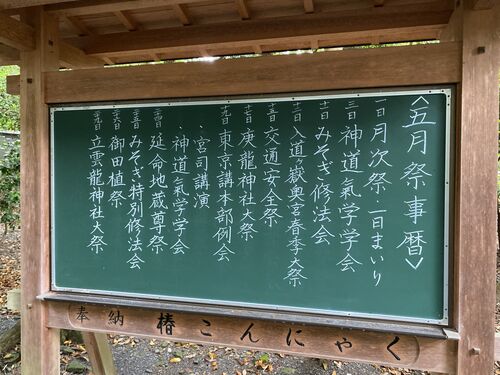 <五月祭事暦>
一日 月次祭・一日まいり
三日 神道氣学学会
十一日 みそぎ修法会
十二日 入道ヶ嶽奥宮春季大祭
十五日 交通安全祭
庚龍神社大祭
十九日 東京講本部例会
〃 宮司講演
〃 神道氣学学会
二四日 延命地蔵尊祭
二五日 みそぎ特別修法会
二六日 御田植祭
二九日 立雲龍神社大祭
奉納 椿こんにゃく